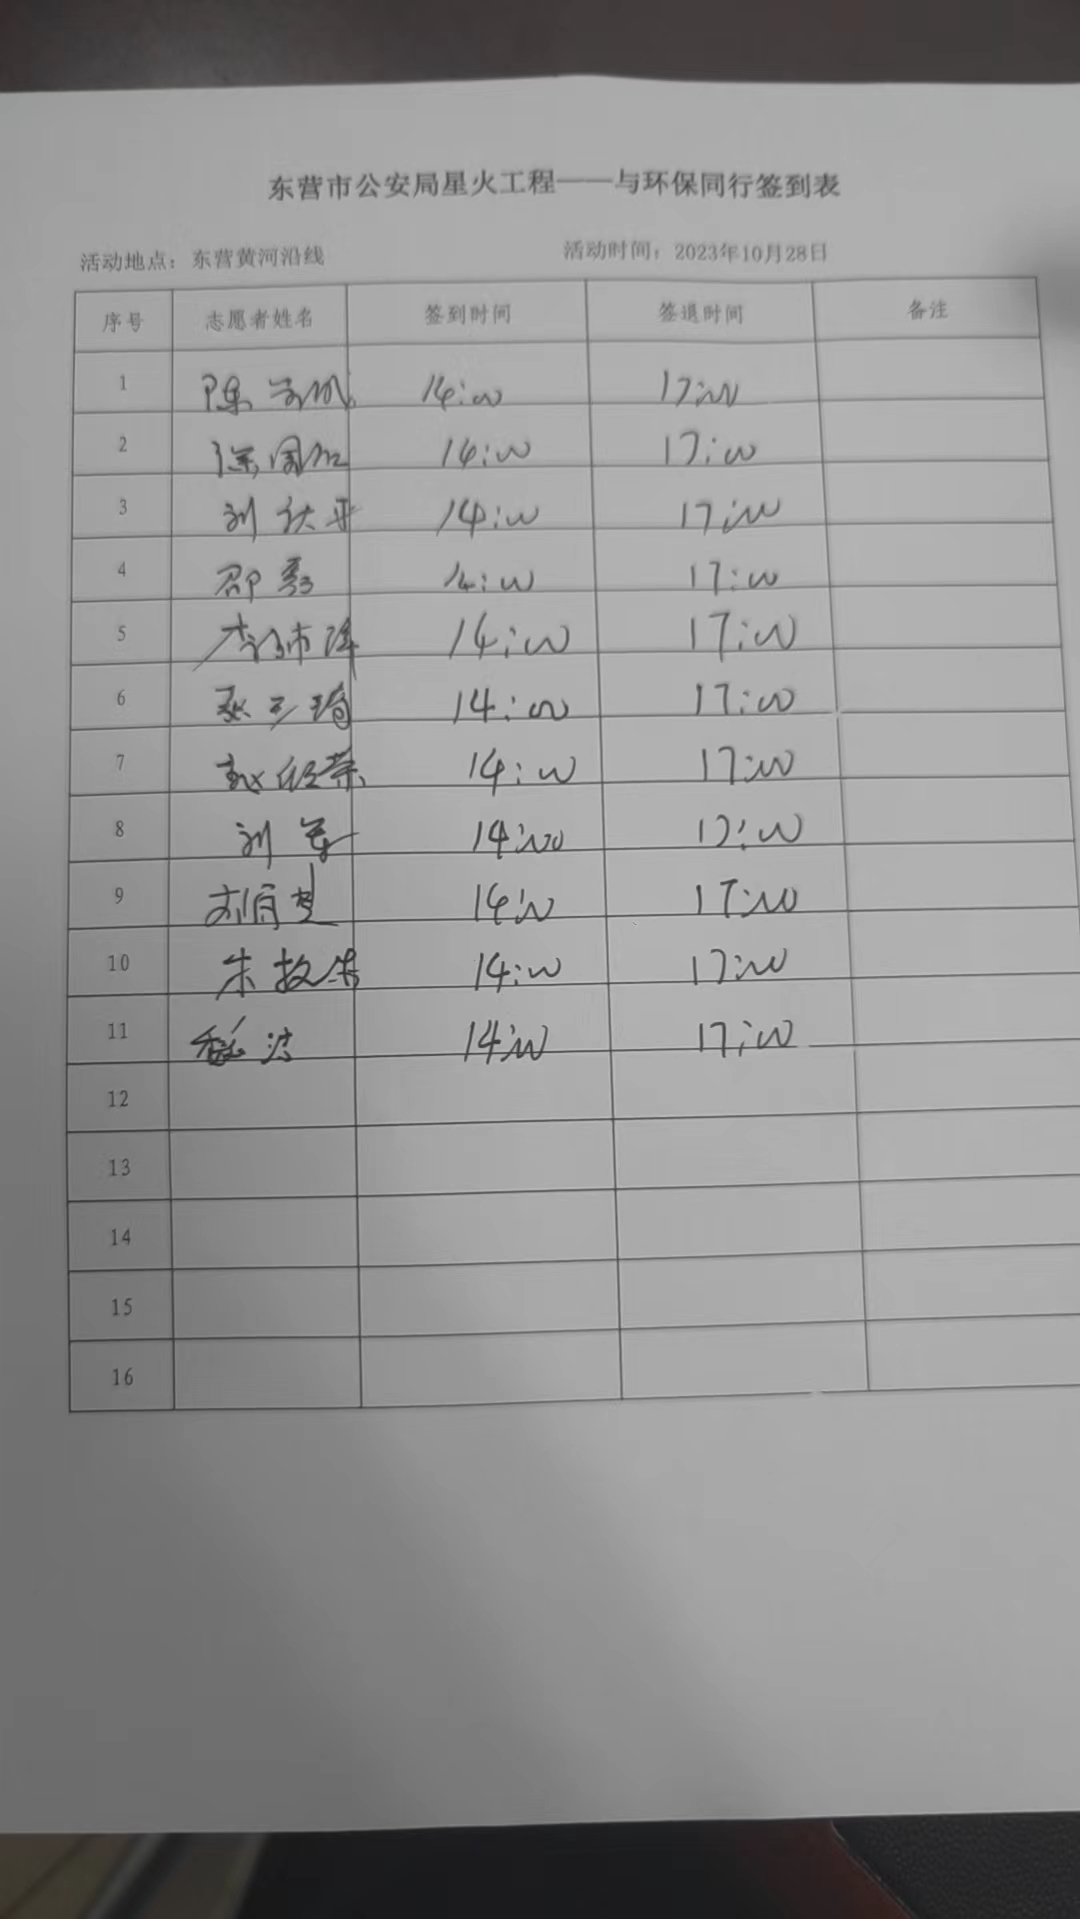 东营市公安局星火工程——与环保同行签到表
活动地点：东营黄河沿线 活动时间：2023年10月28日
序号 志愿者姓名 签到时间 签退时间 备注
1 陈 14:00 17:00
2 徐 14:00 17:00
3 刘 平 14:00 17:00
4 邵秀 14:00 17:00
5 李沛泽 14:00 17:00
6 14:00 17:00
7 赵 荣 14:00 17:00
8 刘军 14:00 17:00
9 刘 14:00 17:00
10 朱 14:00 17:00
11 14:00 17:00
12
13
14
15
16